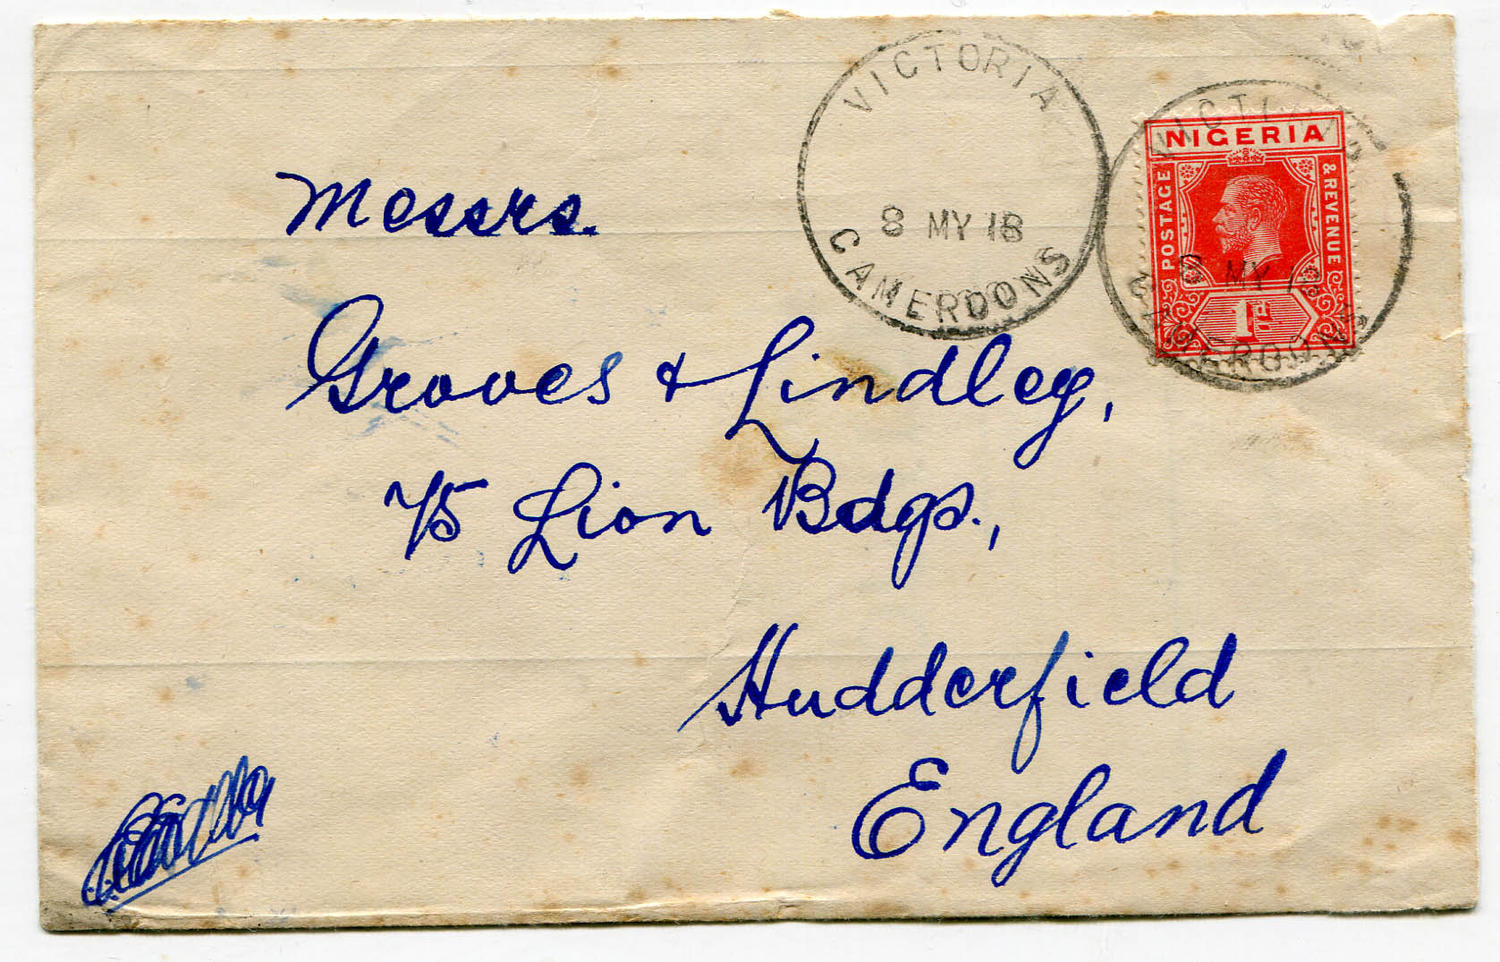 VICTORIA
8 MY 18
CAMEROONS
NIGERIA
POSTAGE
& REVENUE
8 MY 18
1d
Messrs.
Groves & Lindley,
75 Lion Bdgs.,
Huddersfield
England